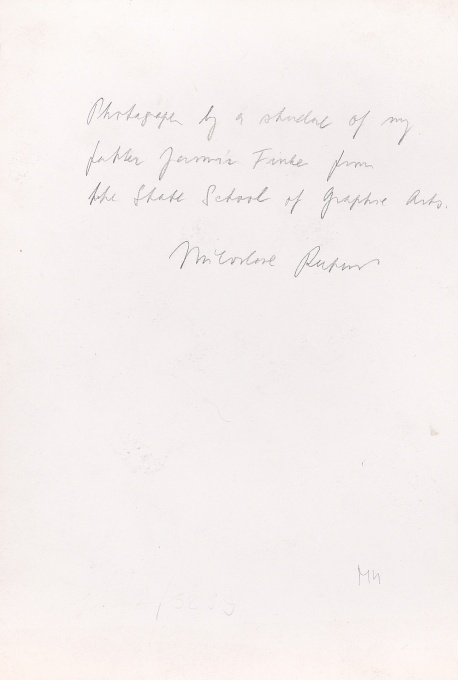 Photograph by a student of my
father Jaromír Funke from
the State School of Graphic Arts.
Miloslava Rupešová
MU